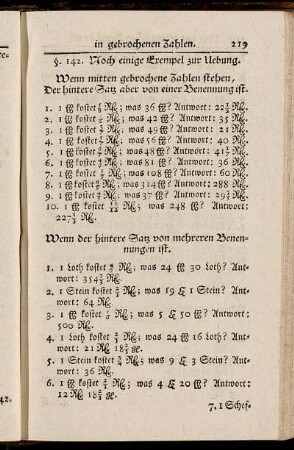 in gebrochenen Zahlen. 219
§. 142. Noch einige Exempel zur Uebung.
Wenn mitten gebrochene Zahlen stehen,
Der hintere Satz aber von einer Benennung ist.
1. 1 ℔ kostet Rß; was 36 ℔? Antwort: 22½ Rß.
2. 1 ℔ kostet Rß; was 42 ℔? Antwort: 35 Rß.
3. 1 ℔ kostet Rß; was 49 ℔? Antwort: 21 Rß.
4. 1 ℔ kostet Rß; was 56 ℔? Antwort: 40 Rß.
5. 1 ℔ kostet Rß; was 48 ℔? Antwort: Rß.
6. 1 ℔ kostet Rß; was 81 ℔? Antwort: 36 Rß.
7. 1 ℔ kostet Rß; was 108 ℔? Antwort: 60 Rß.
8. 1 ℔ kostet Rß; was 324 ℔? Antwort: 288 Rß.
9. 1 ℔ kostet Rß; was 37 ℔? Antwort: Rß.
10. 1 ℔ kostet Rß; was 248 ℔? Antwort:
Rß.
Wenn der hintere Satz von mehreren Benen-
nungen ist.
1. 1 Loth kostet Rß; was 24 ℔ 30 Loth? Ant-
wort: Rß.
2. 1 Stein kostet Rß; was 19 1 Stein? Ant-
wort: 64 Rß.
3. 1 ℔ kostet Rß; was 5 50 ℔? Antwort:
500 Rß.
4. 1 Loth kostet Rß; was 24 ℔ 16 Loth? Ant-
wort: 21 Rß
5. 1 Stein kostet Rß; was 9 3 Stein? Ant-
wort: 36 Rß.
6. 1 ℔ kostet Rß; was 4 20 ℔? Antwort:
12 Rß
7. 1 Schef-